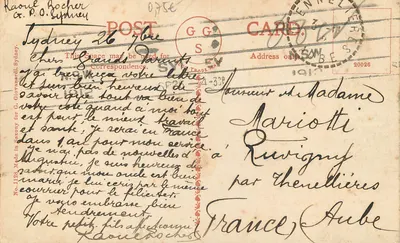 Raoul Rocher
G.P.O. Sydney
075€
POST
CARD.
GG
S
Sydney 26
Chers Grands Parents
J'ai bien reçu votre lettre
et suis bien heureux de
savoir que tout va bien de
votre côté quand à moi tout
est pour le mieux travail
et santé, Je serai en France
dans 1 an pour mon service
Je n'ai pas de nouvelles d'
je suis heureux de
savoir que mon oncle est bien
je lui écris par le même
courrier pour le féliciter.
Je vous embrasse bien
tendrement
Votre petit fils
Raoul Rocher
Correspondence.
Address
26026
Monsieur et Madame
Mariotti
à Ruvigny
par Thennelières
France, Aube